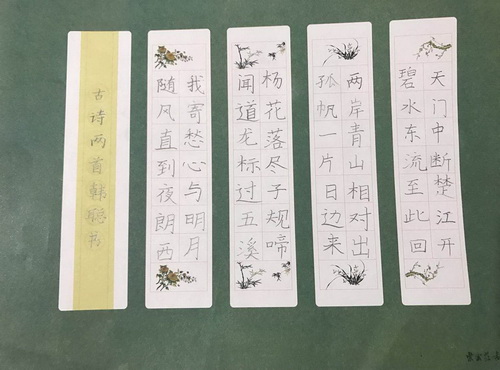 天门中断楚江开
碧水东流至此回
两岸青山相对出
孤帆一片日边来
杨花落尽子规啼
闻道龙标过五溪
我寄愁心与明月
随风直到夜朗西
古诗两首韩书